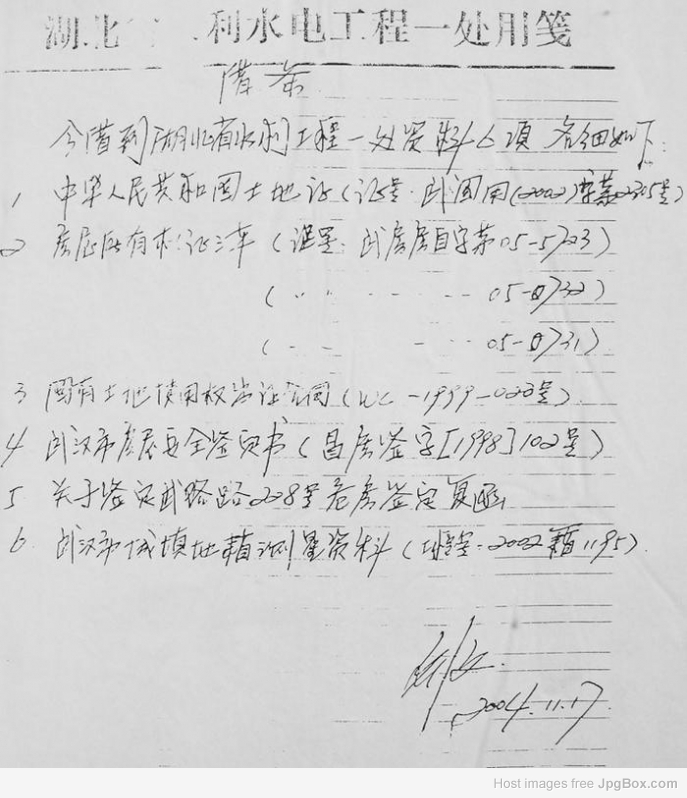 湖北 利水电工程一处用笺
借条
今借到湖北省水利工程一处资料6项 各细如下:
1 中华人民共和国土地证(证号:武国用(2002)字第2305号)
2 房屋所有权证三本 (证号: 武房房自字第05-5723)
( " 05-0732)
( 05-0731)
3 国有土地使用权出让合同(WC-1999-028号)
4 武汉市房屋安全鉴定书(昌房鉴字[1998]102号)
5 关于鉴定武珞路228号危房鉴定复函
6 武汉市城镇地籍测量资料( 2002籍1195).
2004.11.17
Host images free JpgBox.com